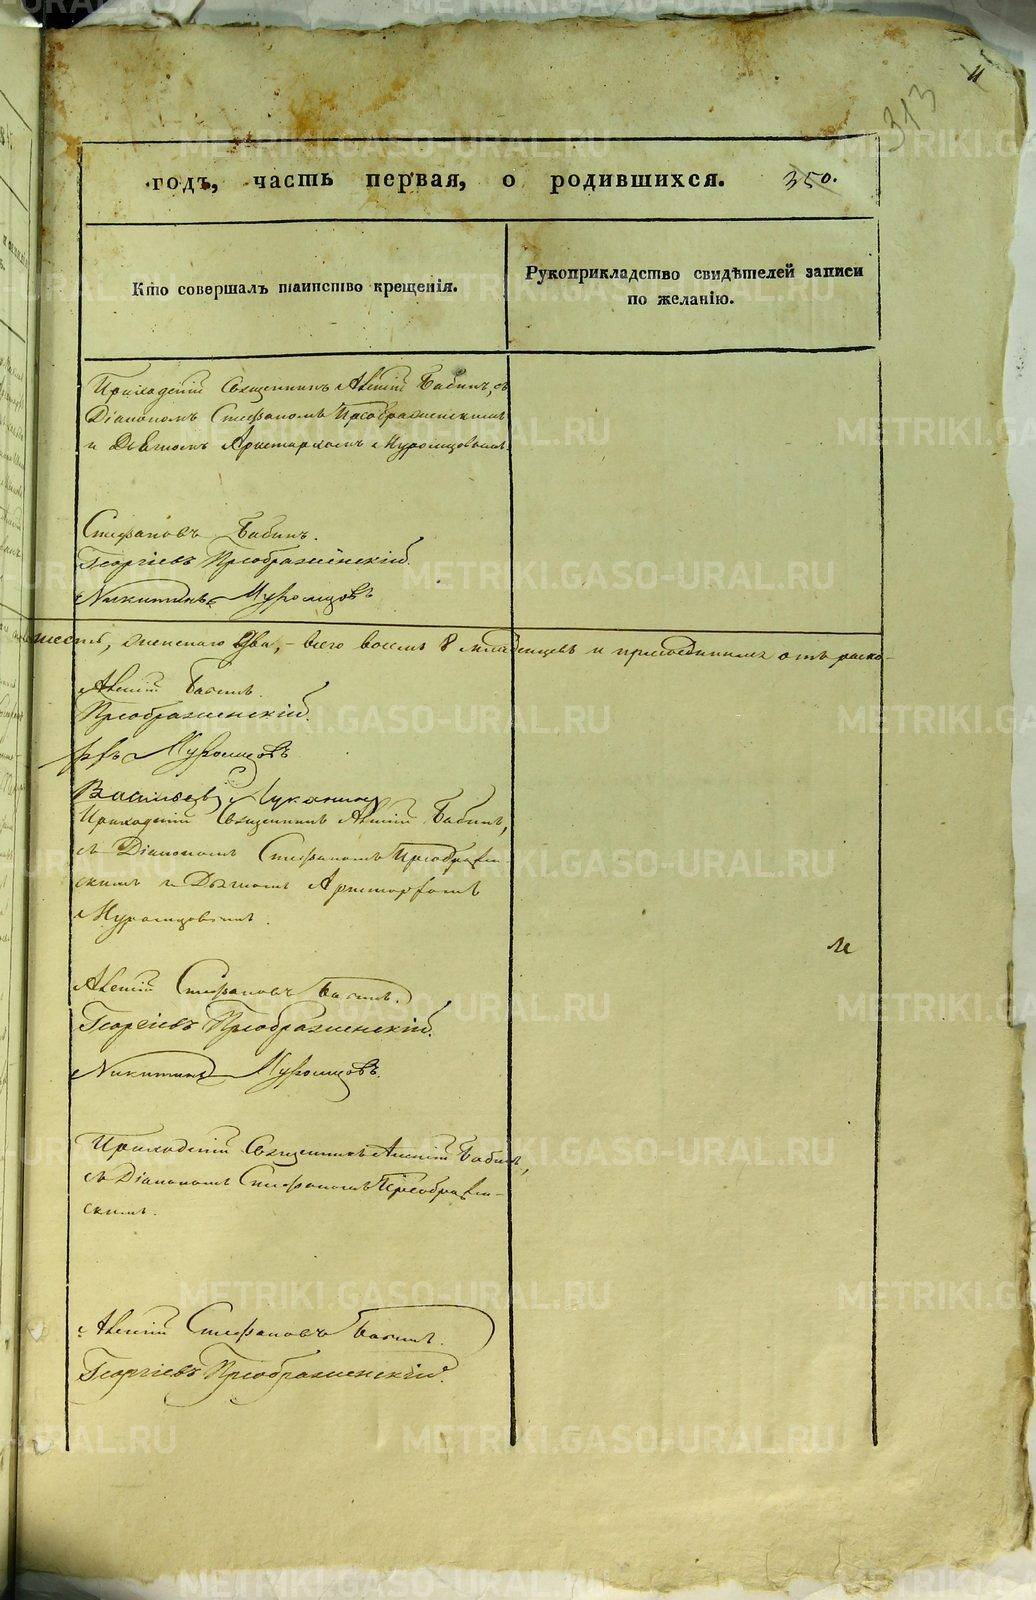 11
313
годъ, часть первая, о родившихся. 350.
Кто совершалъ таинство крещенія.
Рукоприкладство свидѣтелей записи
по желанію.
Приходскій Священникъ Бабинъ, съ
Діакономъ Стефаномъ Преображенскимъ
и Дьячкомъ Аристархомъ Муромцовымъ.
Стефановъ Бабинъ.
Георгіевъ Преображенскій.
Никитинъ Муромцовъ
женскаго два, всего восемь 8 младенцевъ и отъ раско-
Бабинъ.
Преображенскій.
Муромцовъ
Васильевъ
Приходскій Священникъ Бабинъ,
съ Діакономъ Стефаномъ Преображен-
скимъ и Дьячкомъ Аристархомъ
Муромцовымъ.
Стефановъ Бабинъ.
Георгіевъ Преображенскій.
Никитинъ Муромцовъ.
Приходскій Священникъ Бабинъ,
съ Діакономъ Стефаномъ Преображен-
скимъ.
Стефановъ Бабинъ.
Георгіевъ Преображенскій.
METRIKI.GASO-URAL.RU